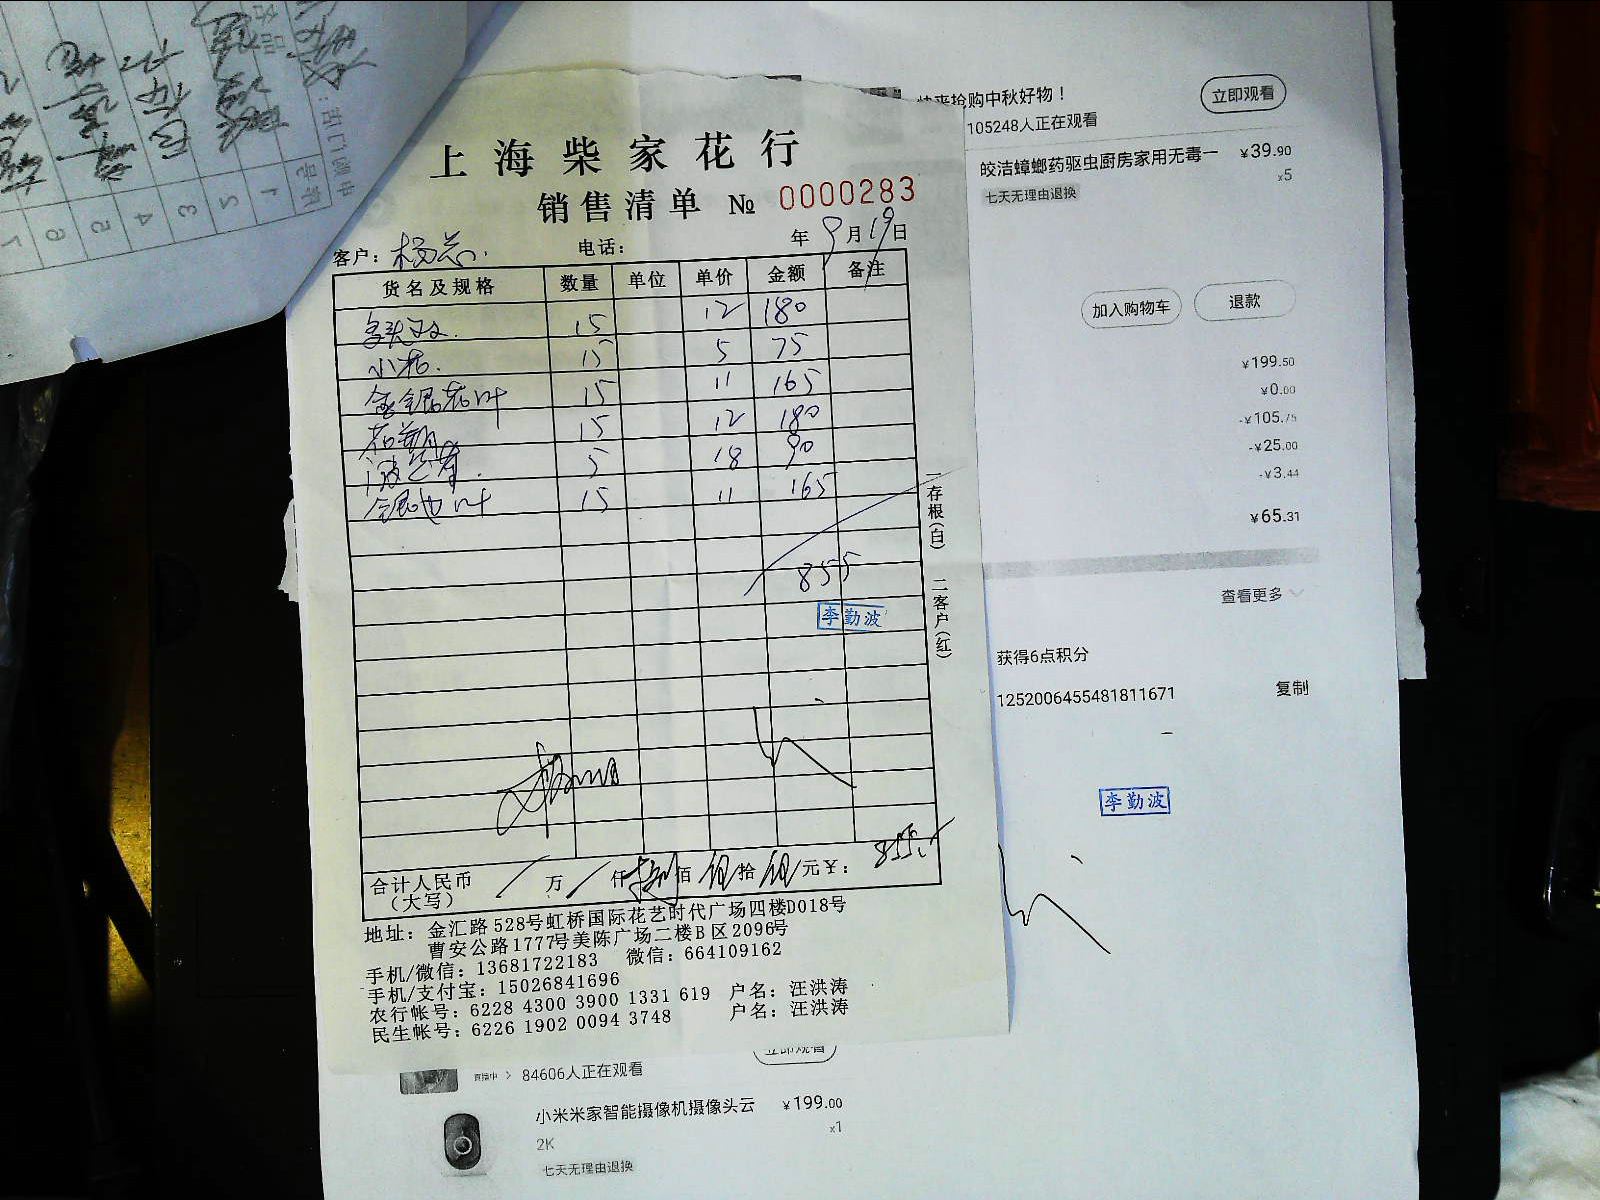 上海柴家花行
销售清单 № 0000283
客户： 电话： 年 9月19日
货名及规格 数量 单位 单价 金额 备注
15 12 180
小花. 15 5 75
金银花叶 15 11 165
15 12 180
5 18 90
银边叶 15 11 165
855
李勤波
一存根(白) 二客户(红)
合计人民币（大写） 万 仟 捌佰 伍拾 伍元￥： 855.
地址：金汇路528号虹桥国际花艺时代广场四楼D018号
曹安公路1777号美陈广场二楼B区2096号
手机/微信：13681722183 微信：664109162
手机/支付宝：15026841696
农行帐号：6228 4300 3900 1331 619 户名：汪洪涛
民生帐号：6226 1902 0094 3748 户名：汪洪涛
抢购中秋好物！ 立即观看
105248人正在观看
皎洁蟑螂药驱虫厨房家用无毒一 ¥39.90
x5
七天无理由退换
加入购物车 退款
¥199.50
¥0.00
-¥105.75
-¥25.00
-¥3.44
¥65.31
查看更多
获得6点积分
1252006455481811671 复制
李勤波
立即观看
直播中 > 84606人正在观看
小米米家智能摄像机摄像头云 ¥199.00
2K x1
七天无理由退换
1
2
3
4
5
6
7